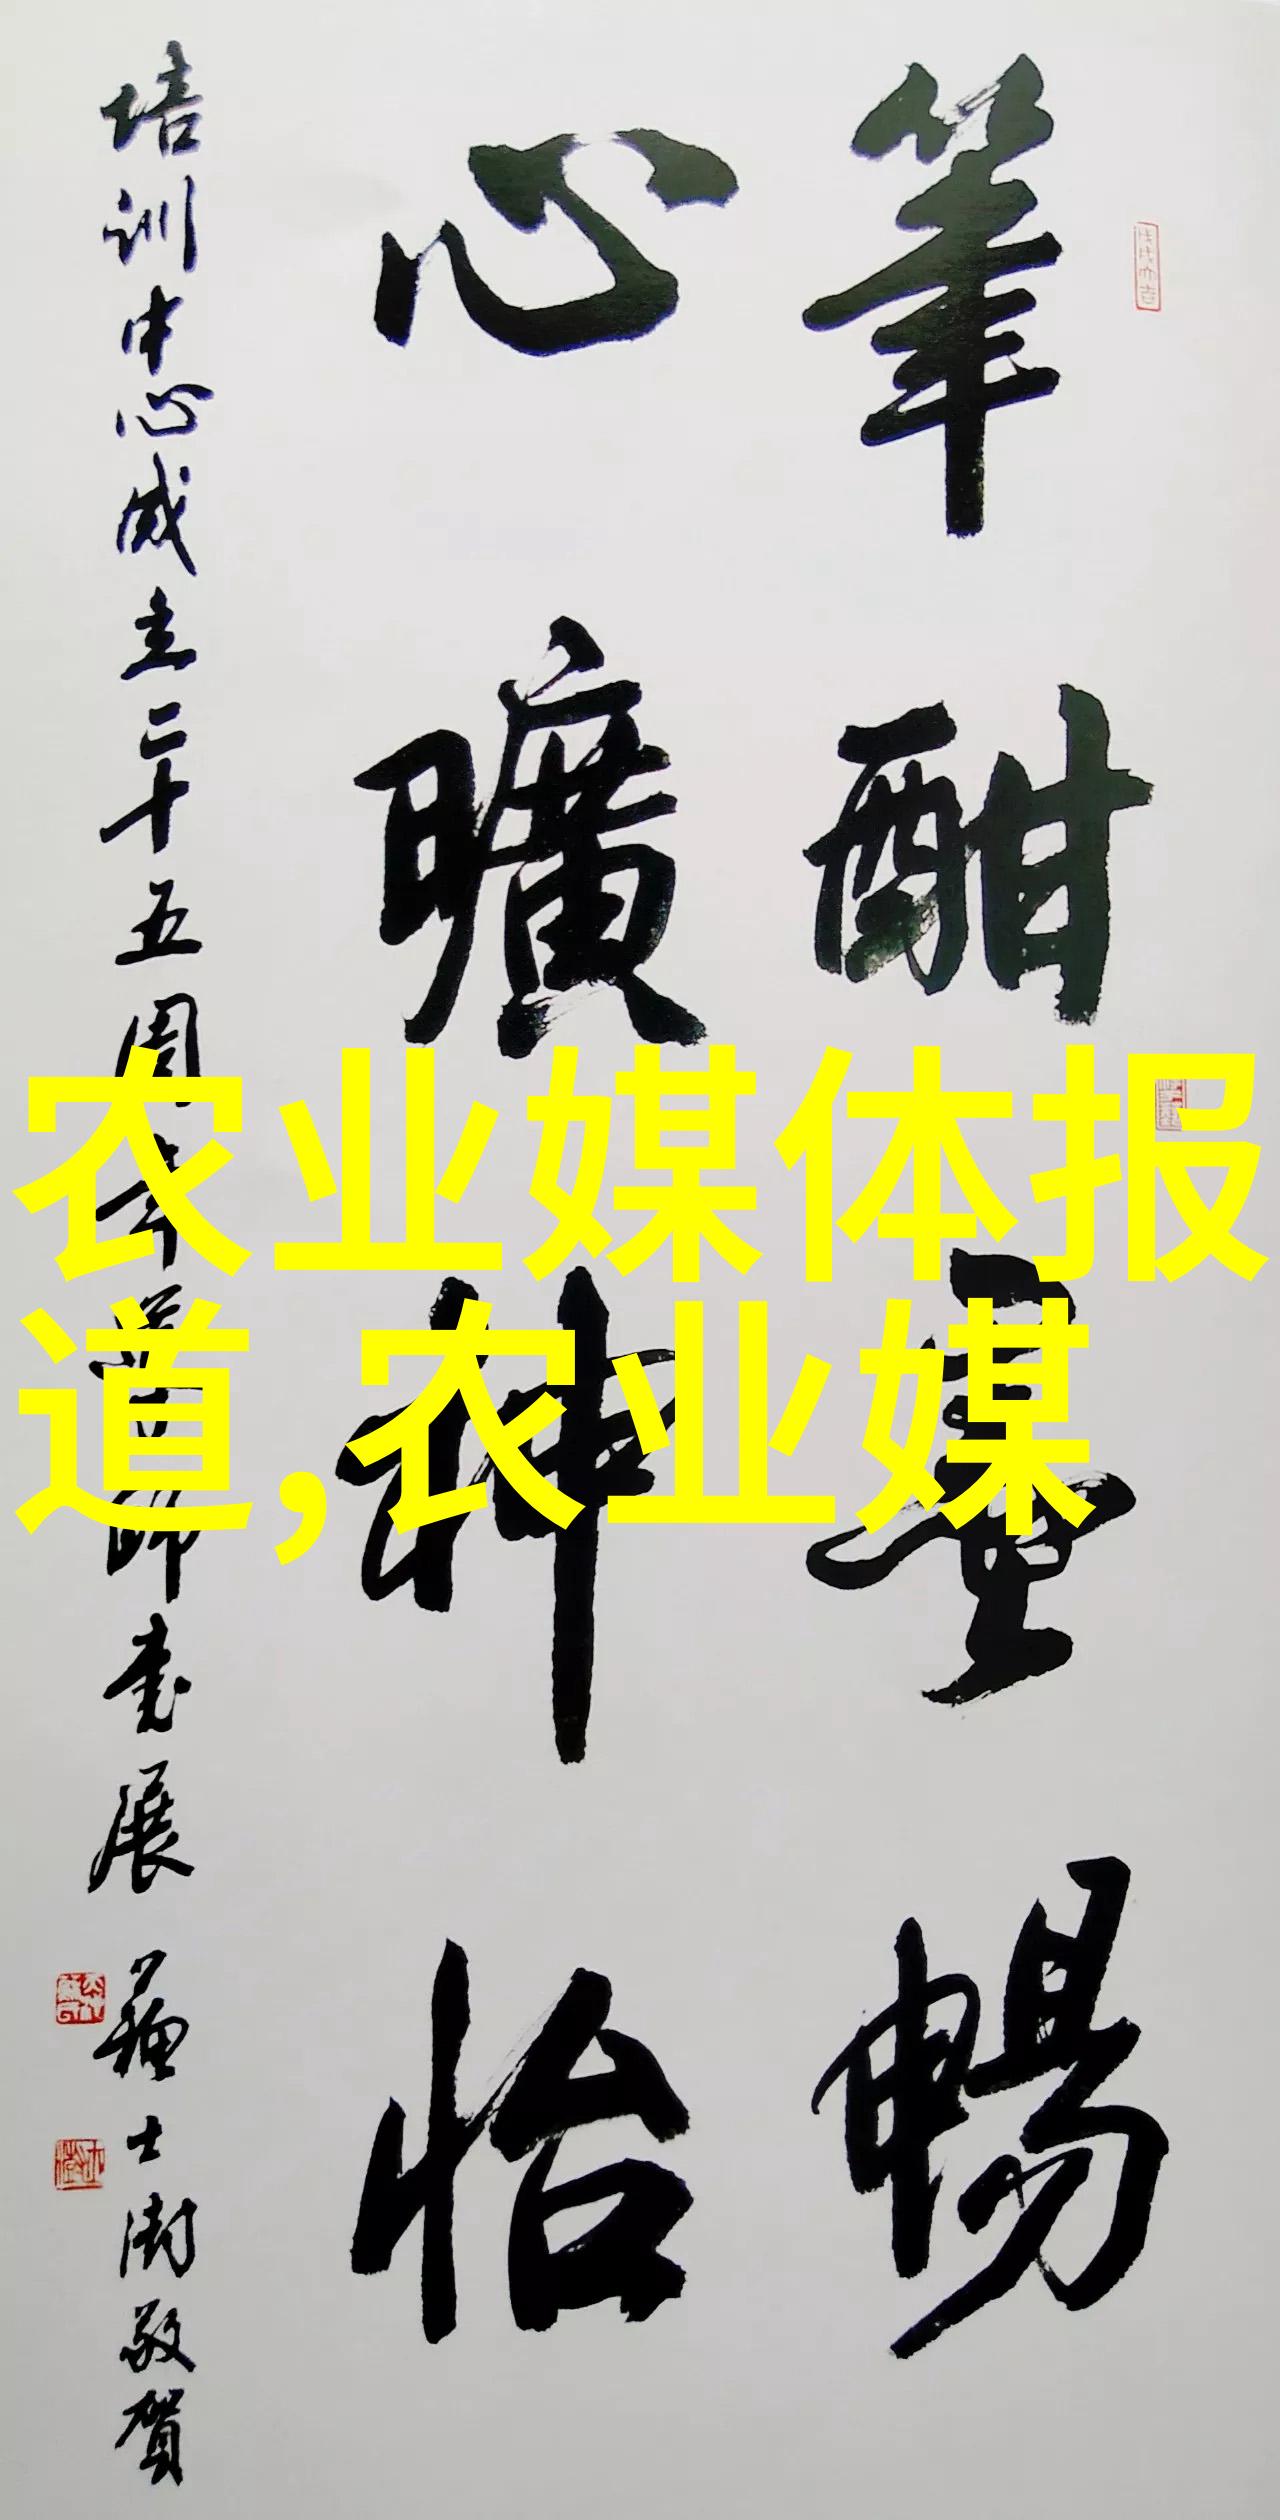 筆酣墨暢
心曠神怡
培训中心成立二十五周年導師書展
蘇士澍敬賀
农业媒体报
道,农业媒